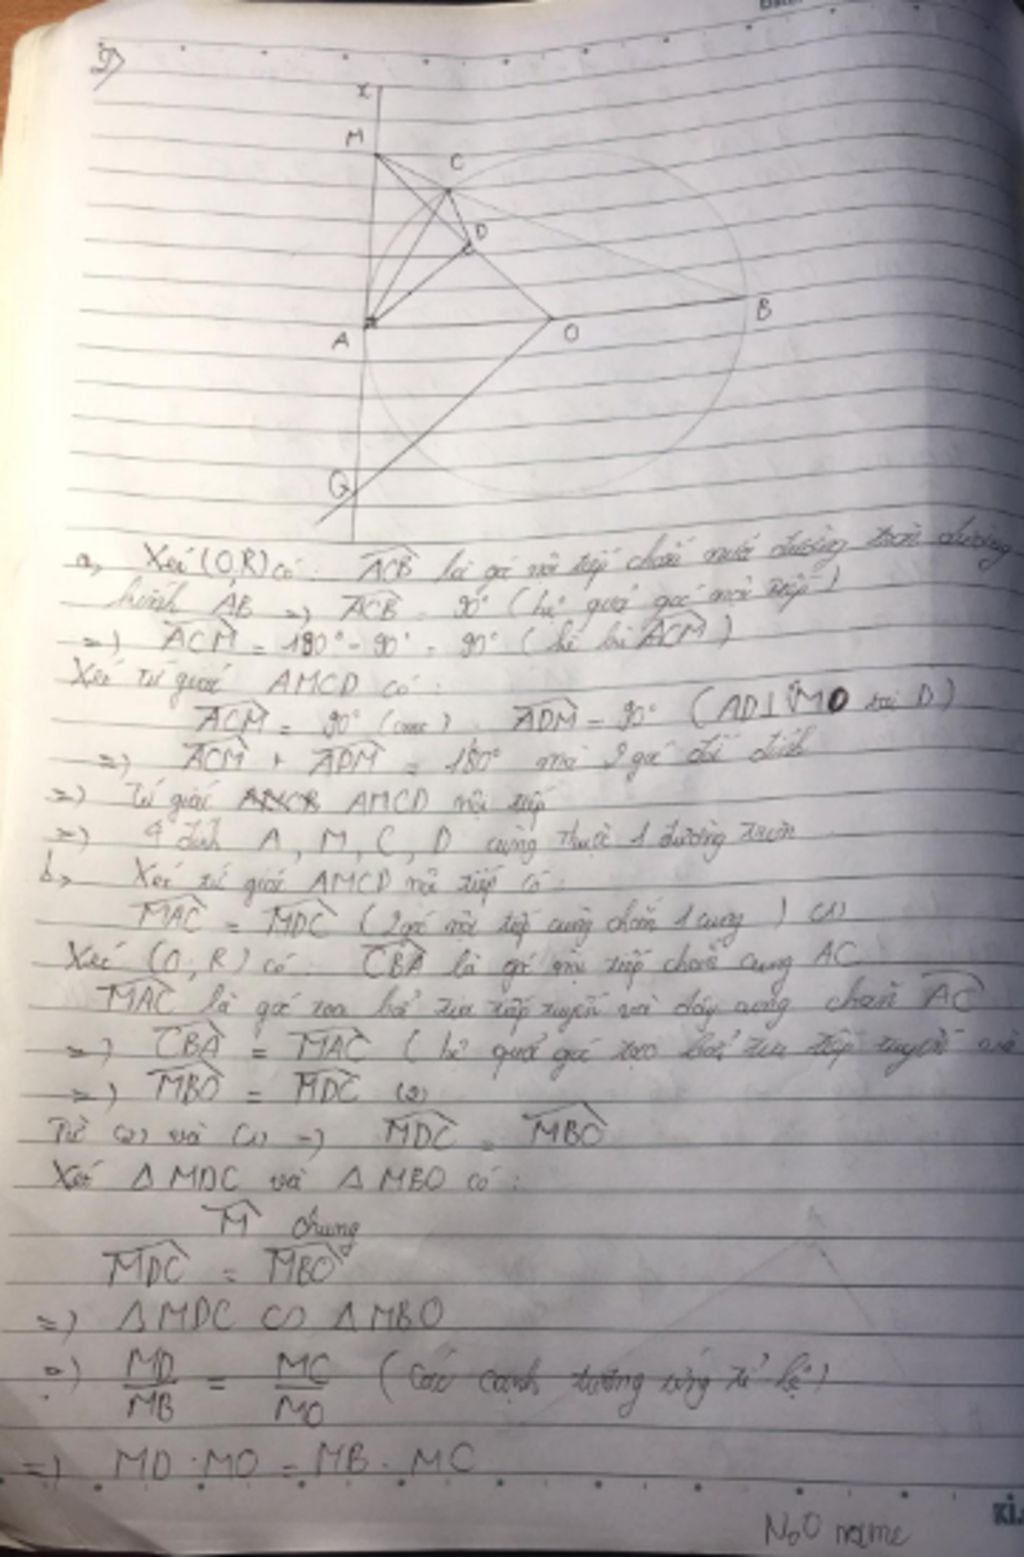 x
M
C
D
A
O
B
Q
a, Xét (O,R) có: ACB là góc nội tiếp chắn nửa đường tròn đường
kính AB => ACB = 90° (hệ quả góc nội tiếp)
=> ACM = 180° - 90° = 90° (kề bù ACM)
Xét tứ giác AMCD có:
ACM = 90° (cmt) . ADM = 90° (AD⊥MO tại D)
=> ACM + ADM = 180° mà 2 góc đối đỉnh
=> Tứ giác AMCD nội tiếp
=> 4 đỉnh A, M, C, D cùng thuộc 1 đường tròn
b, Xét tứ giác AMCD nội tiếp có:
MAC = MDC (2 góc nội tiếp cùng chắn 1 cung) (1)
Xét (O;R) có: CBA là góc nội tiếp chắn cung AC
MAC là góc tạo bởi tia tiếp tuyến và dây cung chắn AC
=> CBA = MAC (hệ quả góc tạo bởi tia tiếp tuyến và
=> MBO = MDC (2)
Từ (2) và (1) => MDC = MBO
Xét Δ MDC và Δ MBO có:
M chung
MDC = MBO
=> Δ MDC ∽ Δ MBO
=> MD/MB = MC/MO (Các cạnh tương ứng tỉ lệ)
=> MD . MO = MB . MC
No0 name